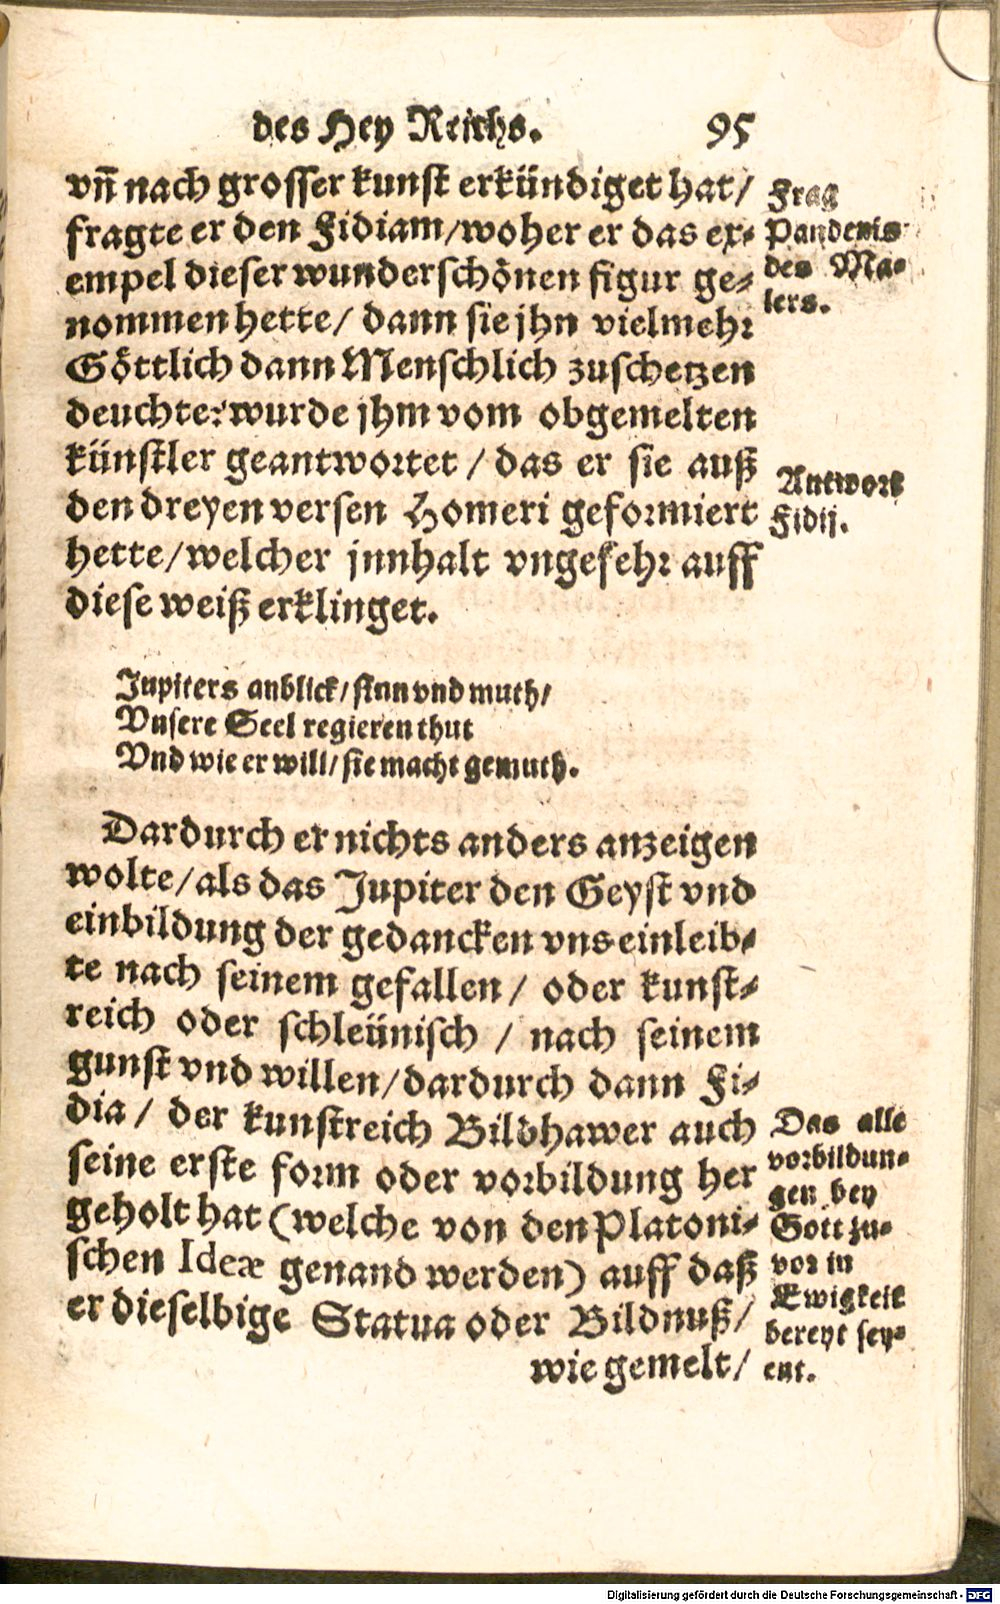 des Hey Reichs. 95
vñ nach grosser kunst erkündiget hat/
fragte er den Fidiam/woher er das ex-
empel dieser wunderschönen figur ge-
nommen hette/ dann sie jhn vielmehr
Göttlich dann Menschlich zuschetzen
deuchte: wurde jhm vom obgemelten
künstler geantwortet / das er sie auß
den dreyen versen Homeri geformiert
hette/welcher jnnhalt vngefehr auff
diese weiß erklinget.
Frag
Pandenis
des Ma-
lers.
Antwort
Fidij.
Jupiters anblick/ sinn vnd muth/
Vnsere Seel regieren thut
Vnd wie er will/ sie macht gemuth.
Dardurch er nichts anders anzeigen
wolte/als das Jupiter den Geyst vnd
einbildung der gedancken vns einleib-
te nach seinem gefallen / oder kunst-
reich oder schleünisch / nach seinem
gunst vnd willen/dardurch dann Fi-
dia / der kunstreich Bildhawer auch
seine erste form oder vorbildung her
geholt hat (welche von den Platoni-
schen Ideæ genand werden) auff daß
er dieselbige Statua oder Bildnuß/
wie gemelt/
Das alle
vorbildun-
gen bey
Gott zu-
vor in
Ewigkeit
bereyt sey-
ent.
Digitalisierung gefördert durch die Deutsche Forschungsgemeinschaft - DFG